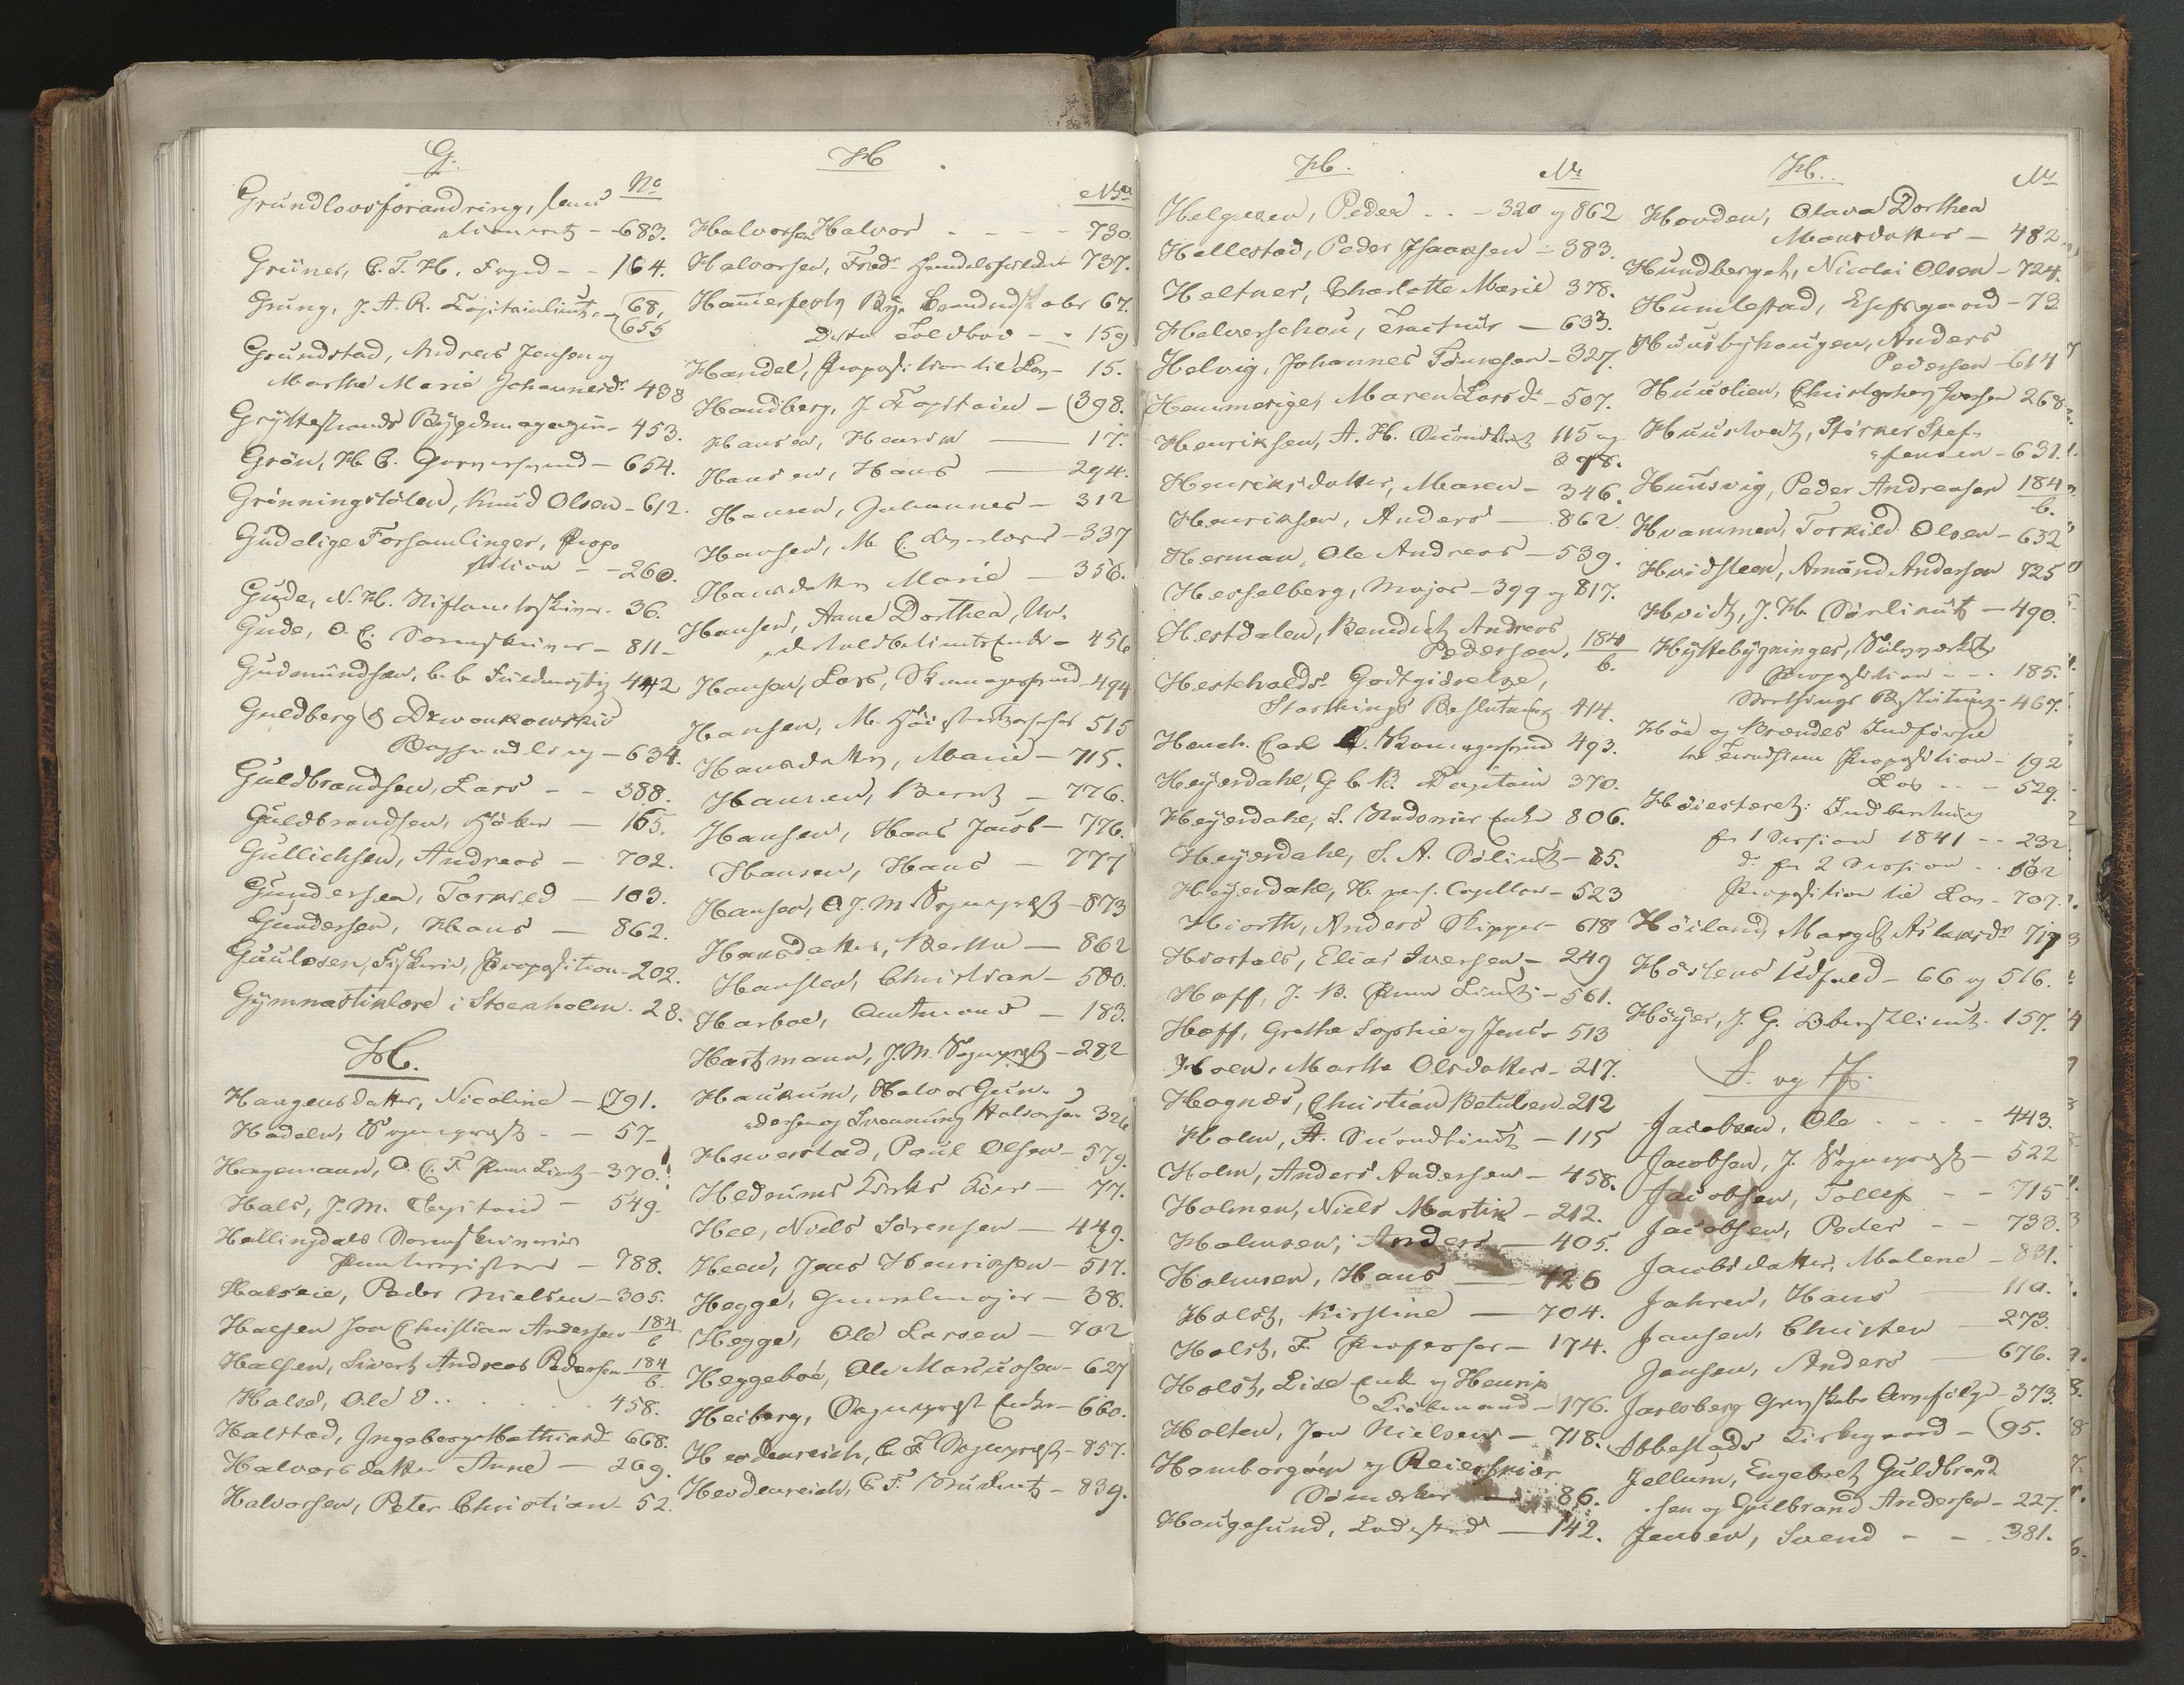 G.
No
Grundlovsforandring,
683.
Grüner, C. T. H. Foged - - 164.
Grung, J. A. R. Capitainlieut. - og 68,
655
Grundstad, Andreas Jensen og
Marthe Marie Johannesd. 438
Gryttestrands Bygdemagazin - 453.
Grön, H C. - 654.
Grönningstölen, Knud Olsen - 612.
Gudelige Forsamlinger, Propo
sition - - 260.
Gude, N. H. 36.
Gude, O. C. Sorenskriver - 811 -
Gudmundsen, 442
Guldberg & Dzwonkowskis
Boghandling - 634.
Guldbrandsen, Lars - - 388.
Guldbrandsen, - 165.
Gullichsen, Andreas - 702.
Gundersen, Torkild - 103.
Gundersen, Hans - 862.
Guulosen, Fiskerie, Proposition - 202.
Gymnastiklære i Stockholm. 28.
H.
Haagensdatter, Nicoline - 791.
Hadeln, Sogneprest - - 57 -
Hagemann, O. C. F. Prm. Lieut. - 370.
Hals, J. M. Capitain - 549.
Hallingdals Sorenskriveries
Panteregister - 788.
Halseie, Peder Nielsen - 305.
Halsen Jon Christian Andersen 184
b
Halsen, Sivert Andreas Pedersen - 184
b.
Halsd, Ole O . . . 458.
Halstad, Ingeborg Mathiasd. 668.
Halvorsdatter Anne - 269.
Halvorsen, Peter Christian - 52.
H
No
Halvorsen Halvor - - - - 730.
Halvorsen, Fred. 737.
Hammerfests By, 67.
Ditto Toldbod - - 159
Handel, Proposition til Lov - 15.
Handberg, J. Capitain - 398.
Hansen, Henrik - 17.
Hansen, Hans - 294.
Hansen, Johannes - 312
Hansen, M. C. - 337
Hansdatter Marie - 356.
Hansen, Anne Dorthea, Un-
- 456
Hansen, Lars, - 494
Hansen, M. 515
Hansdatter, Marie - 715.
Hansen, Bernt - 776.
Hansen, Hans Jacob - 776.
Hansen, Hans - 777
Hansen, O. J. M. Sogneprest - 873
Hansdatter, Berthe - 862
Hansteen, Christian - 500.
Harboe, Amtmand - 183.
Hartmann, J. M. Sogneprest - 282
Haukum, Halvor Gun-
dersen og Halvorsen 326
Haverstad, Paul Olsen - 579.
Hedrums Kirkes - 77.
Hee, Niels Sörensen - 449.
Heen, Jens Henriksen - 517.
Hegge, Generalmajor - 38.
Hegge, Ole Larsen - 702
Heggeboe, Ole Marcussen - 627
Heiberg, Sogneprest Enke - 660.
Heidenreich, C F. Sogneprest - 857.
Heidenreich, C F. - 839.
H.
No
Helgesen, Peder . . - 320 og 862
Hellestad, Peder Isaaksen - 383.
Heltner, Charlotte Marie 378.
Helverschou, - 633.
Helvig, Johannes Tönnesen - 327.
Hemmerige, Maren Larsd. - 507.
Henriksen, A. H. Secondlieut. 115 og
398.
Henriksdatter, Maren - 346.
Henriksen, Anders - 862.
Herman, Ole Andreas - 539.
Hesselberg, Major - 399 og 817.
Hestdalen, Benedict Andreas
Pedersen, 184
b.
Hesteholds Godtgiørelse,
Storthings Beslutning 414.
Heuch. Carl 493.
Heyerdahl, G C. B. Capitain 370.
Heyerdahl, S. Enke 806.
Heyerdahl, S. A. - 85.
Heyerdahl, H. pers. Capellan - 523
Hiorth, Anders Skipper - 618
Hiortals, Elias Iversen - 249
Hoff, J. B. Prm. Lieut. - 561.
Hoff, Grethe Sophie og Jens - 513
Hoen, Marthe Olsdatter - 217.
Hognæs, Christian Betulsen. 212
Holm, A. Secondlieut. - 115
Holm, Anders Andersen - 458.
Holmen, Niels Martin - 212.
Holmsen, Anders - 405.
Holmsen, Hans - 426
Holst, Kirstine - 704.
Holst, F. Professor - 174.
Holst, Lise Enke og Henrik
- 176.
Holten, Jon Nielsen - 718.
Homborgöen og Reierskiær
Sömærker - 86.
Haugesund, Ladested - 142.
H..
No
Hovden, Olava Dorthea
Monsdatter - 482
Hundberget, Nicolai Olsen - 724.
Humlestad, - 73
Huusbyhaugen, Anders
Pedersen - 614
Huuslien, Christopher Iversen 268
Huuslvedt, Störker Stef-
fensen - 631.
Huusvig, Peder Andreasen 184
b.
Hvammen, Torkild Olsen - 632
Hvidsteen, Amund Andersen 725
Hvidt, J. H. - 490.
Hyttebygninger, Sølvværkets
Proposition - - - 185.
Storthings Beslutning - 467.
Höe og Brændes Indførsel
Proposition - 192
Lov . . - 529.
Høiesteret: Indberetning
for 1 Session 1841 - - 232.
d. for 2 Session . . 562
Proposition til Lov - 707.
Höiland, Margit Aslaksdr. 717
Höstens Udfald - 66 og 516.
Höyer, J. G. Oberstlieut. 157.
I. og J.
Jacobsen, Ole . . . . 443.
Jacobsen, J. Sogneprest - 522
Jacobsen, Tollef - - 715
Jacobsen, Peder - - 738.
Jacobsdatter, Malene - 831.
Jahren, Hans - 110.
Jansen, Christen - 273.
Jansen, Anders - 676.
Jarlsberg Grevskabs Arvefølge - 373.
Ibbestads Kirkegaard - 95.
Jellum, Engebret Guldbrand
sen og Gulbrand Andersen - 227.
Jensen, Svend - - 381.